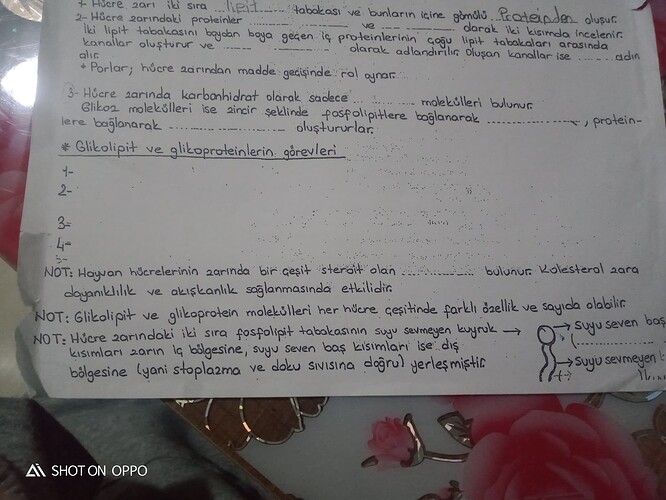 1- Hücre zarı iki sıra ..lipit.... tabakası ve bunların içine gömülü Proteinden oluşur.
2- Hücre zarındaki proteinler .................. ve .................. olarak iki kısımda incelenir.
İki lipit tabakasını boydan boya geçen iç proteinlerinin çoğu lipit tabakaları arasında
kanallar oluşturur ve ........ .............. olarak adlandırılır. Oluşan kanallar ise ......... adın
alır.
* Porlar; hücre zarından madde geçişinde rol oynar.
3- Hücre zarında karbonhidrat olarak sadece ............ molekülleri bulunur.
Glikoz molekülleri ise zincir şeklinde fosfolipitlere bağlanarak .................., protein-
lere bağlanarak .................. oluştururlar.
* Glikolipit ve glikoproteinlerin görevleri
1-
2-
3-
4-
5-
NOT: Hayvan hücrelerinin zarında bir çeşit steroit olan .............. bulunur. Kolesterol zara
dayanıklılık ve akışkanlık sağlanmasında etkilidir.
NOT: Glikolipit ve glikoprotein molekülleri her hücre çeşitinde farklı özellik ve sayıda olabilir.
NOT: Hücre zarındaki iki sıra fosfolipit tabakasının suyu sevmeyen kuyruk → → Suyu seven baş
kısımları zarın iç bölgesine, suyu seven baş kısımları ise dış (..............
bölgesine (yani stoplazma ve doku sıvısına doğru) yerleşmiştir. → Suyu sevmeyen
SHOT ON OPPO